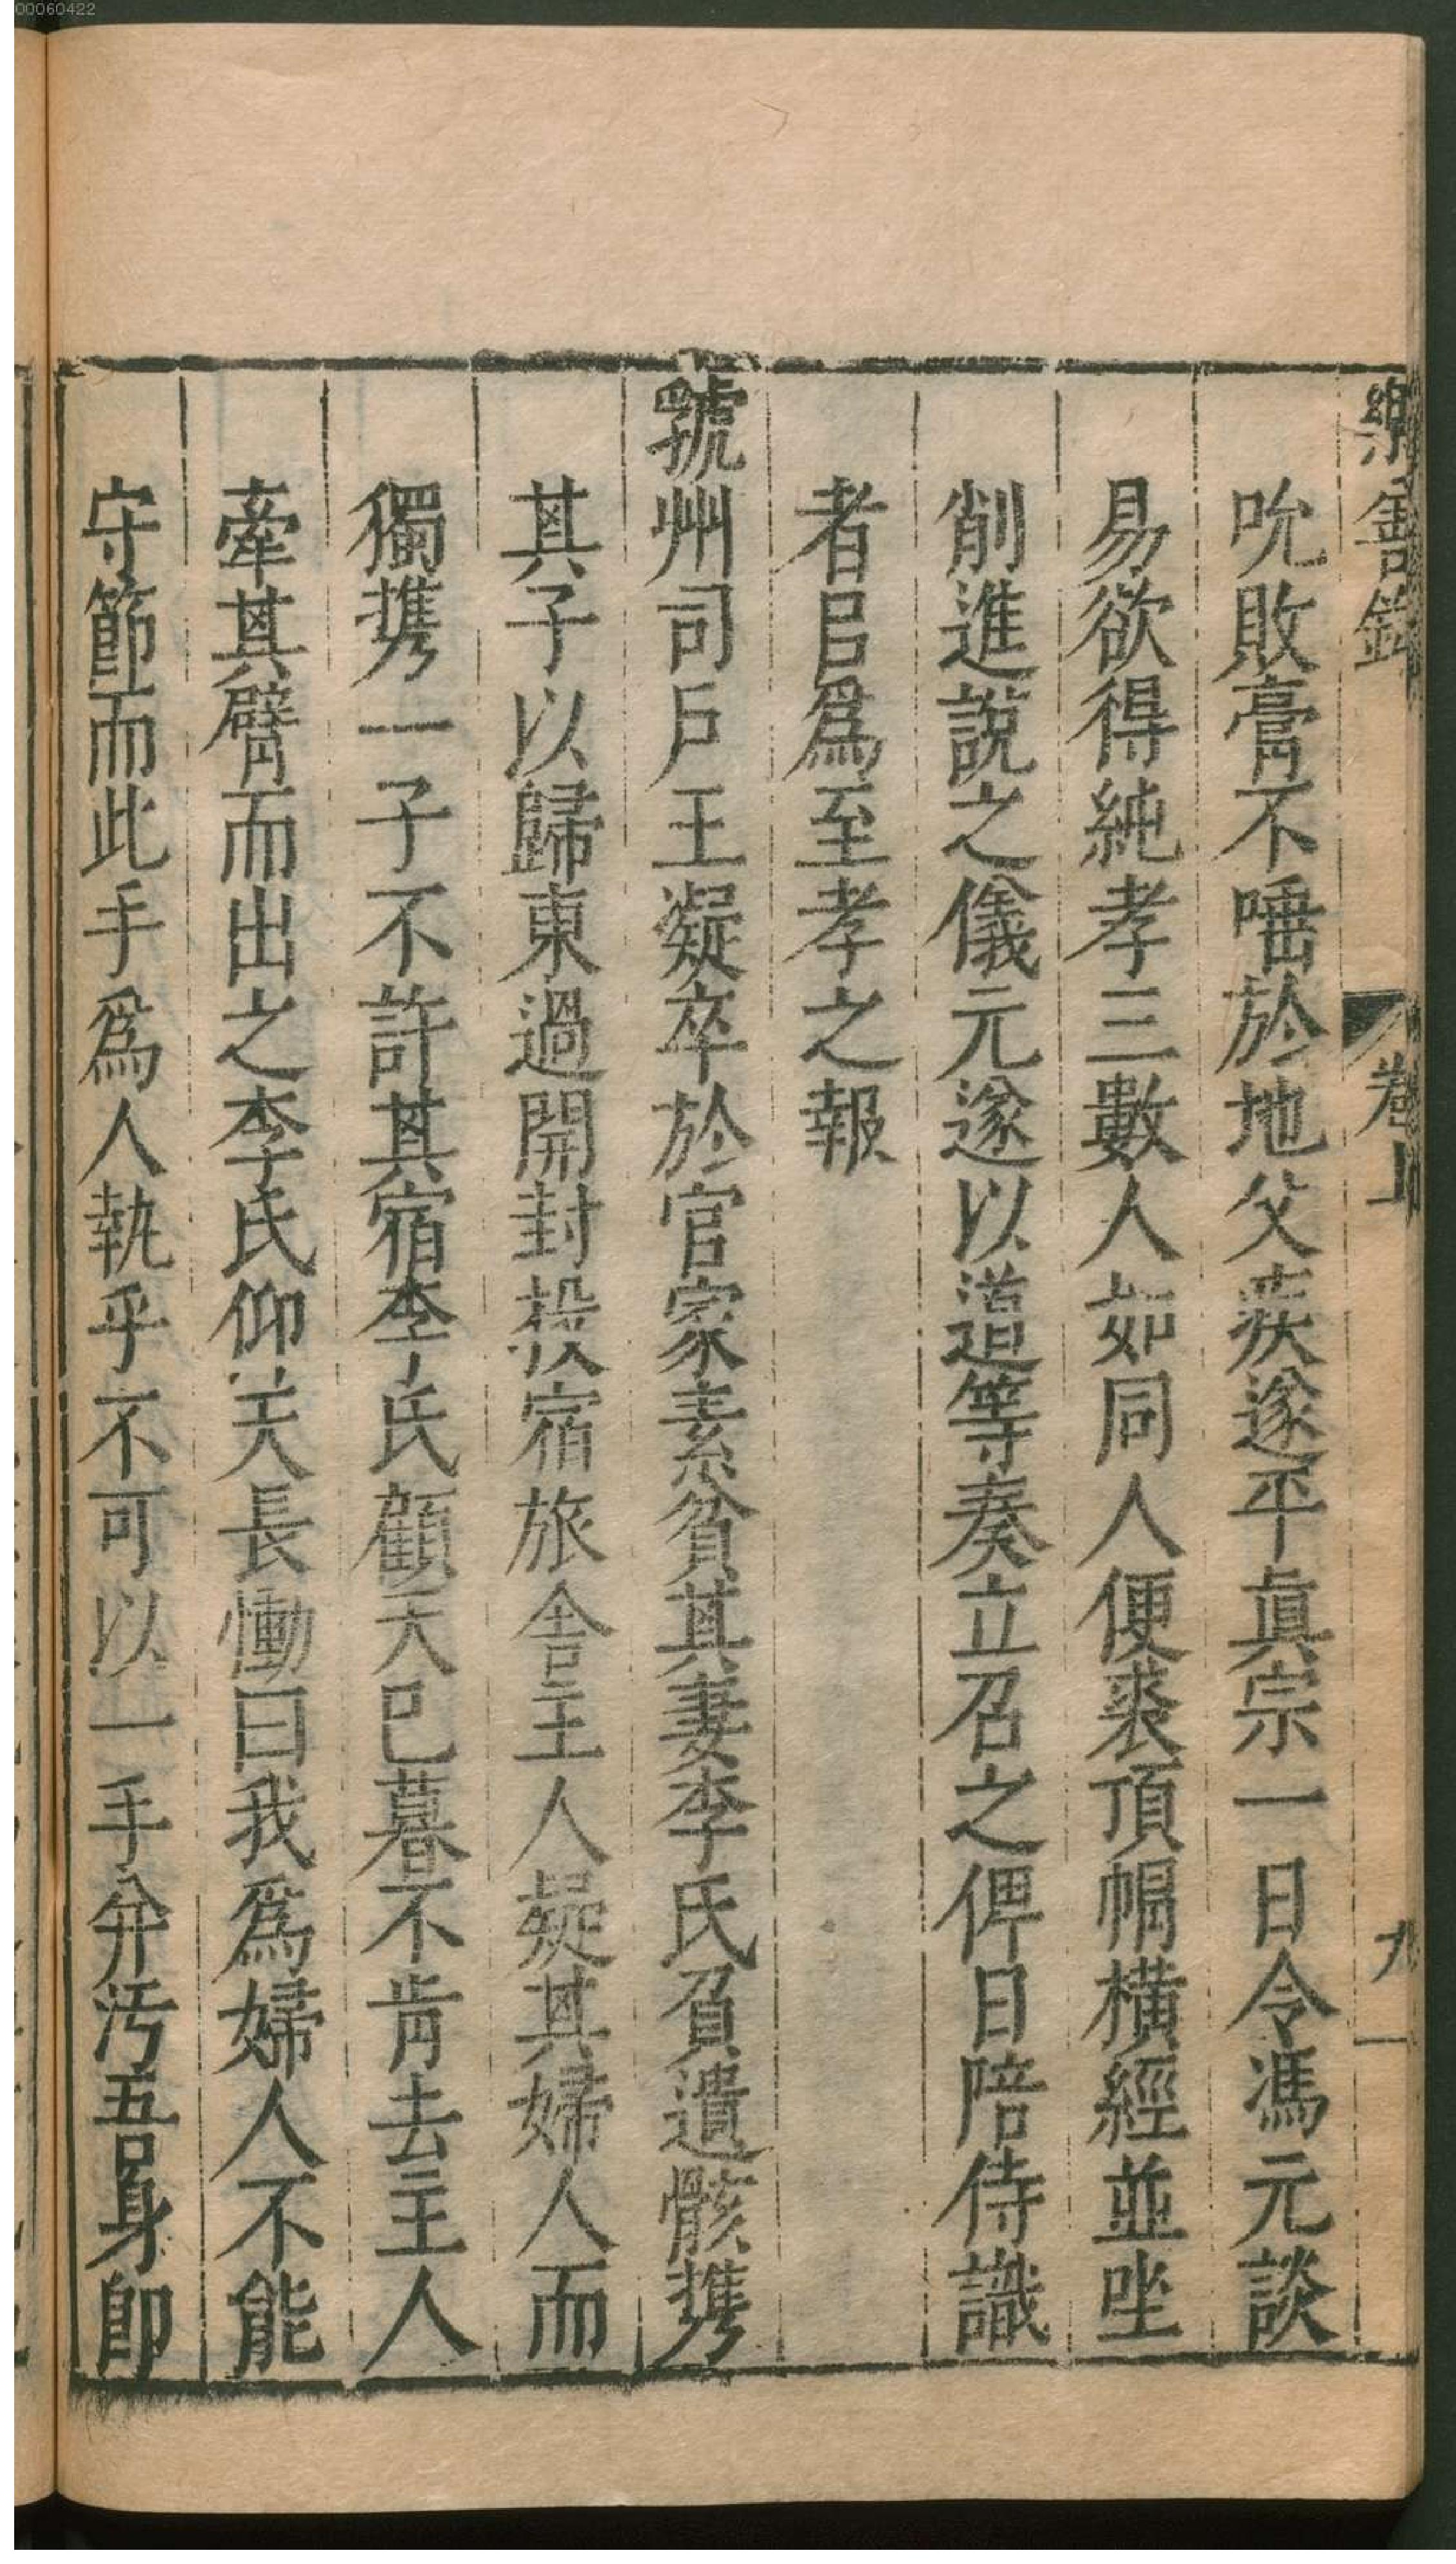 00060422
樂善錄 卷上 九
吮敗膏不唾於地父疾遂平眞宗一日令馮元談
易欲得純孝三數人如同人便裘頂帽橫經並坐
削進說之儀元遂以邅等奏立召之俾日陪侍識
者㠯爲至孝之報
虢州司戶王凝卒於官家素貧其妻李氏負遺骸携
其子以歸東過開封投宿旅舎主人疑其婦人而
獨携一子不許其宿李氏顧天已暮不肯去主人
牽其臂而出之李氏仰天長慟曰我爲婦人不能
守節而此手爲人執乎不可以一手并汚吾身卽